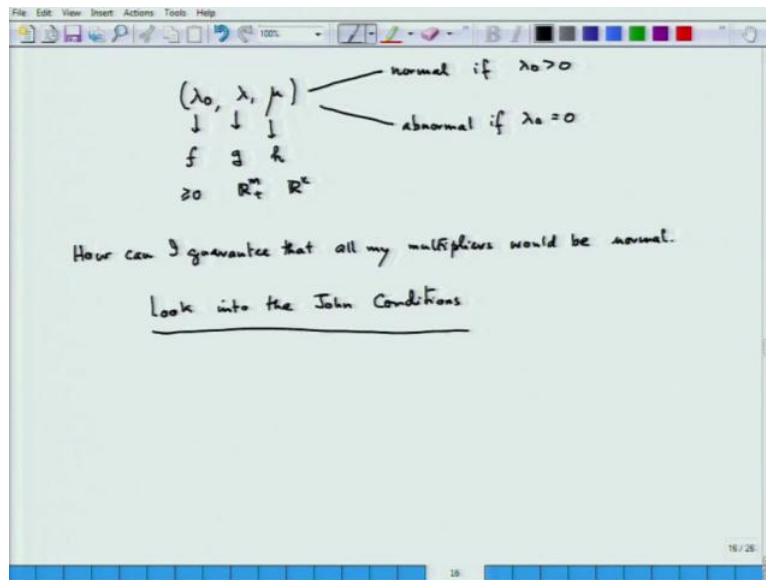 File Edit View Insert Actions Tools Help
100%
B I
normal if λ₀>0
(λ₀, λ, μ)
abnormal if λ₀ = 0
↓ ↓ ↓
f g h
≥0 ℝᵐ₊ ℝᵏ
How can I guarantee that all my multipliers would be normal.
Look into the John Conditions
16